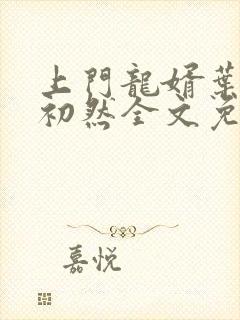 上門龍婿葉
初然全文免
嘉悅